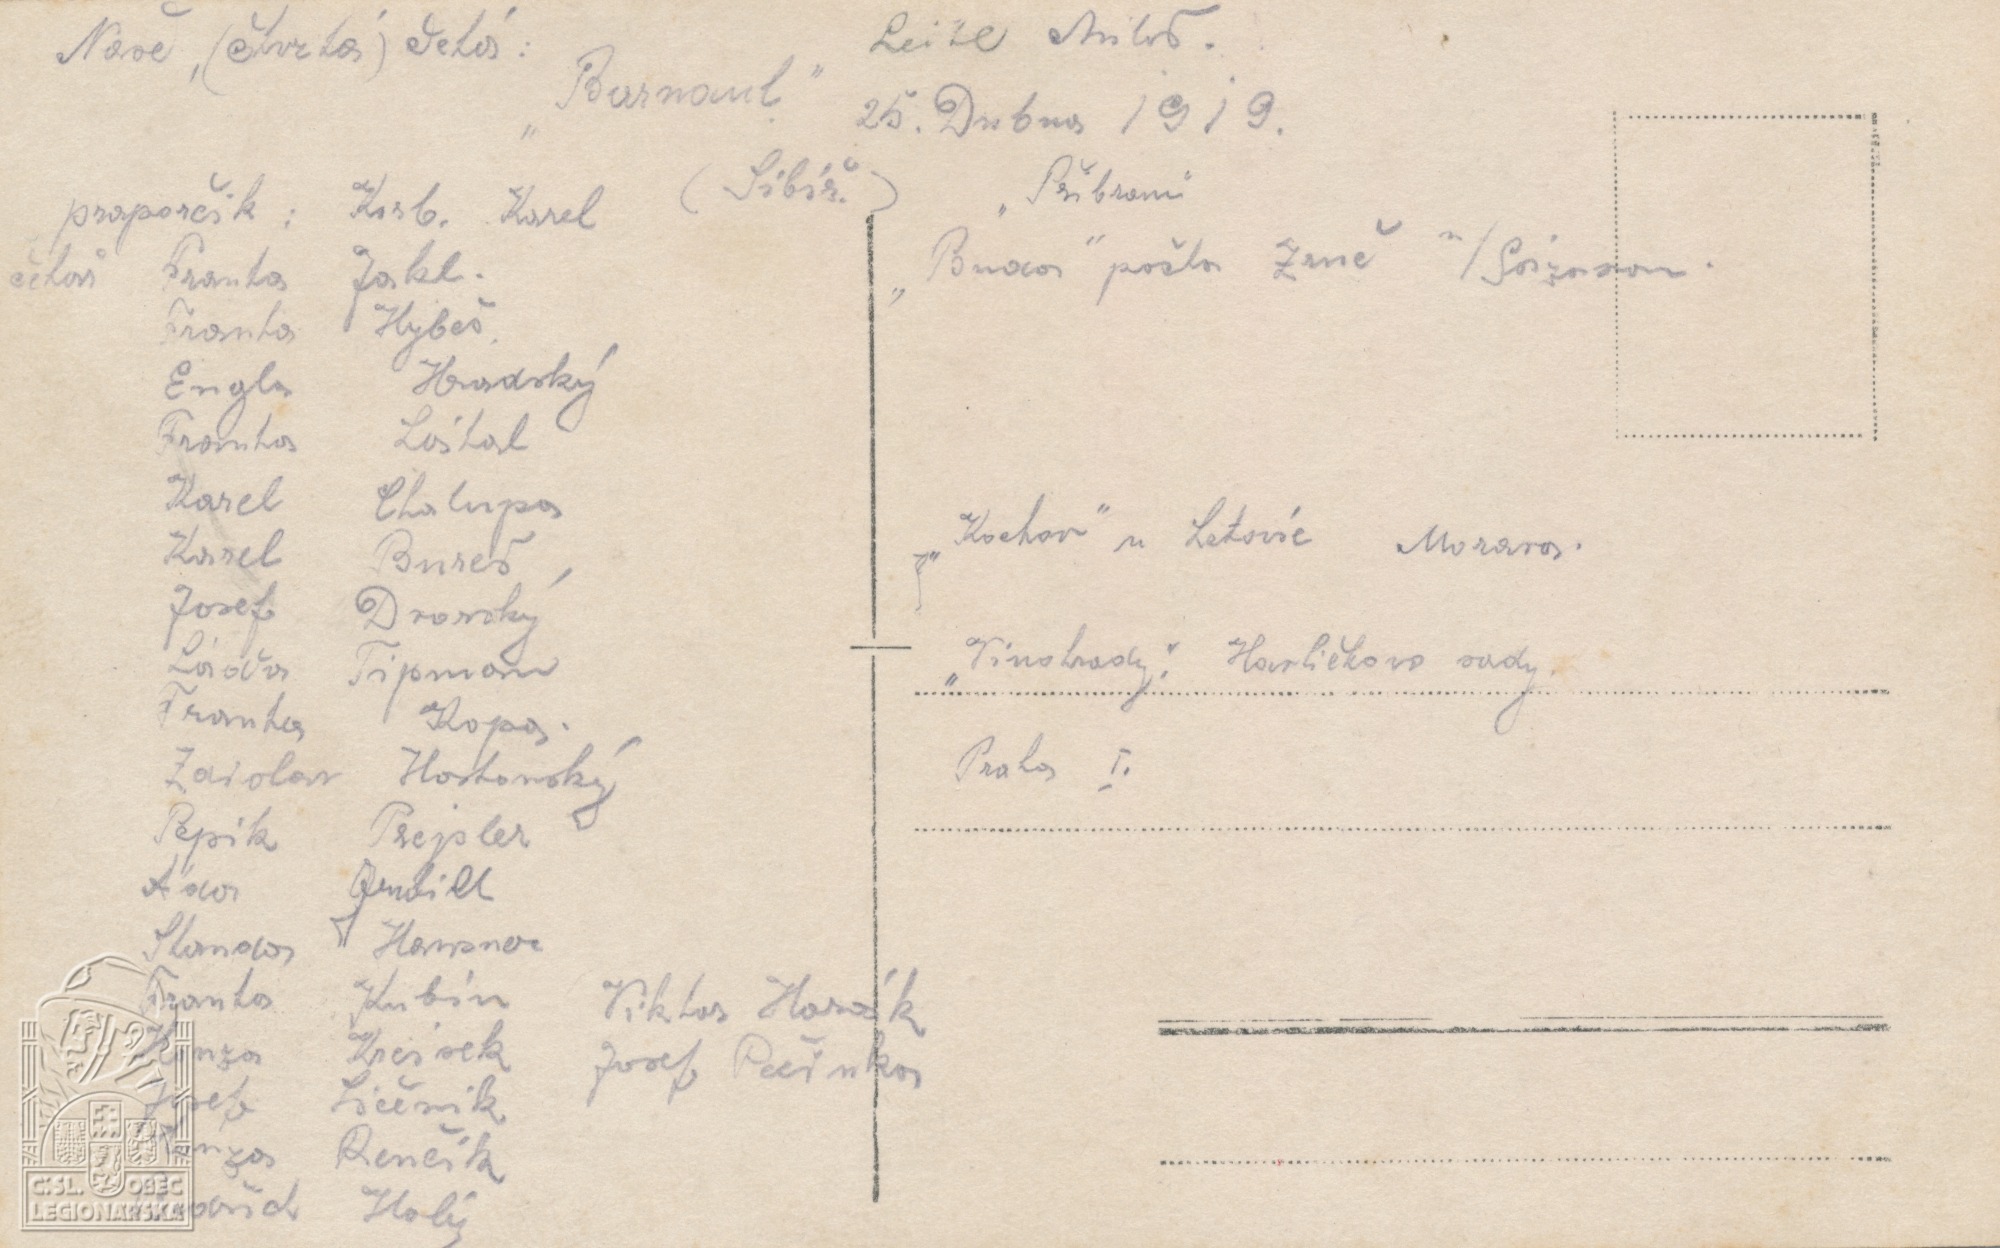 Naše, (čtvrtá) četa:
Leixe Miloš.
„Barnaul."
25. Dubna 1919.
(Sibiř.)
praporčík: Korb. Karel
četař Franta Jakl.
Franta Hybeš.
Engla Hradský
Franta Lašťal
Karel Chalupa
Karel Bureš,
Josef Dvorský
Láďa Tipman
Franta Kopa.
Zdislav Hostonský
Pepik Prejzler
Áda
Standa Hausner
Franta Kubín Viktor Horák
Honza Křísek Josef Pečinka
Josef Ličeník
Honza Renčík
Holý
„Příbram"
„Buda" pošta Zruč n/Sázavou.
„Kochov" u Letovic Morava.
„Vinohrady", Havlíčkovo sady.
Praha I.
ČSL. OBEC
LEGIONÁŘSKÁ